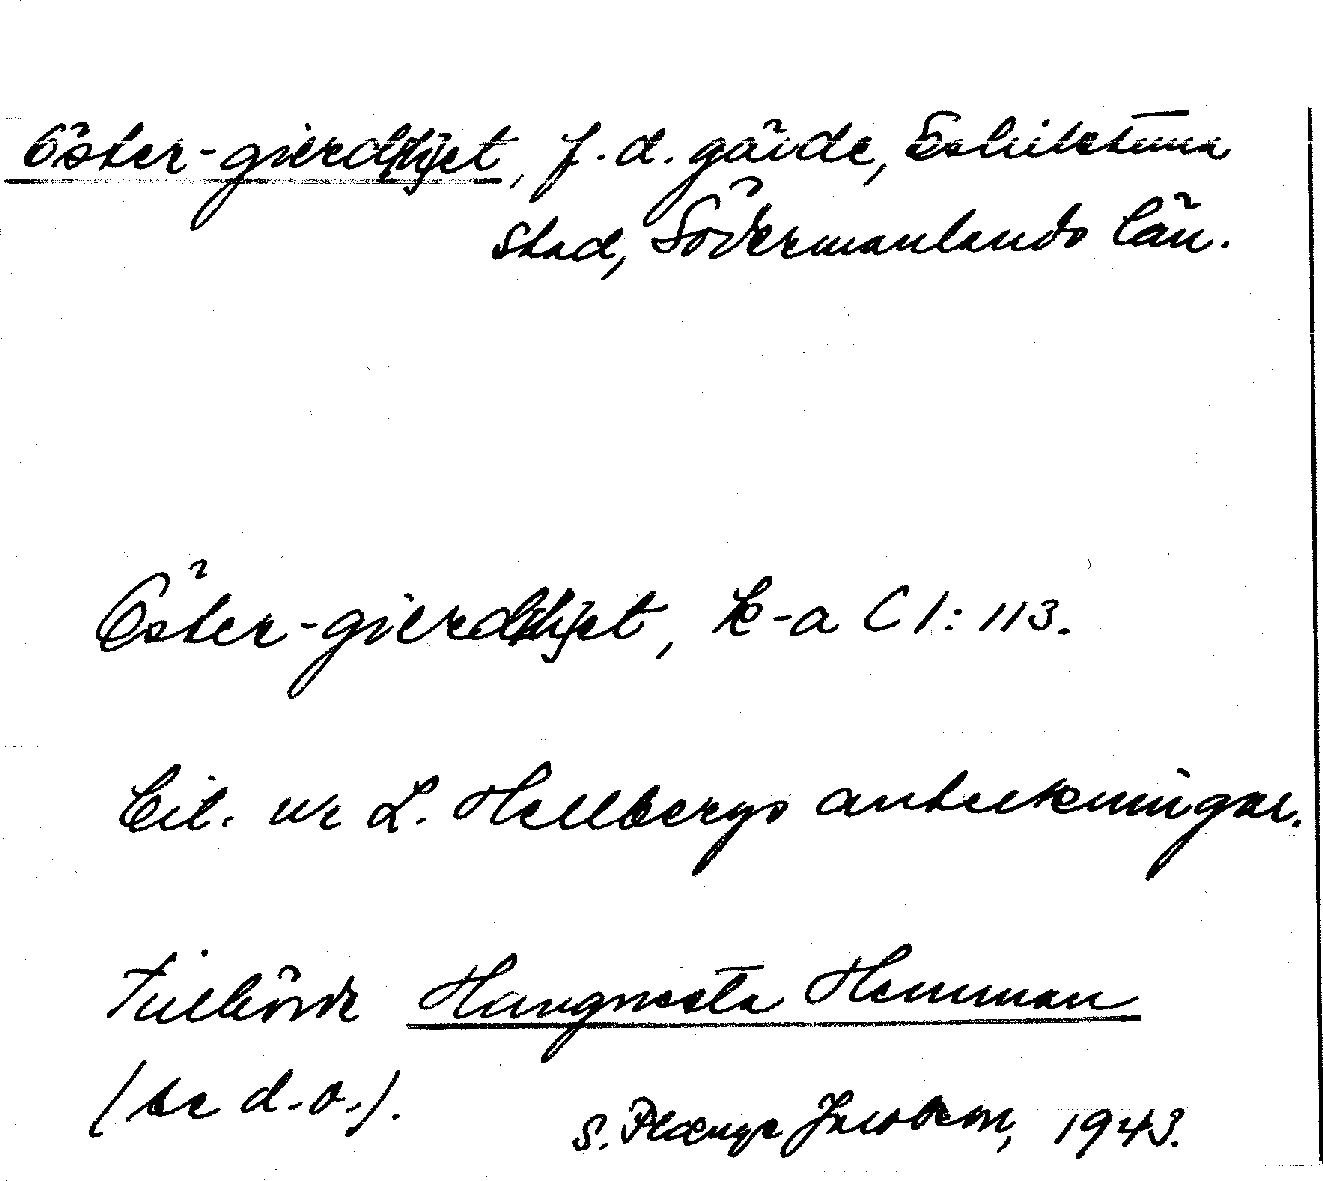 Öster-gierdhet, f.d. gärde, Eskilstuna
stad, Södermanlands län.
Öster-gierdhet, k-a C1: 113.
Cit. ur L. Hellbergs anteckningar.
Tillhörde Haugnesta Hemman
(se d.o.).
S. Jacobsen, 1943.